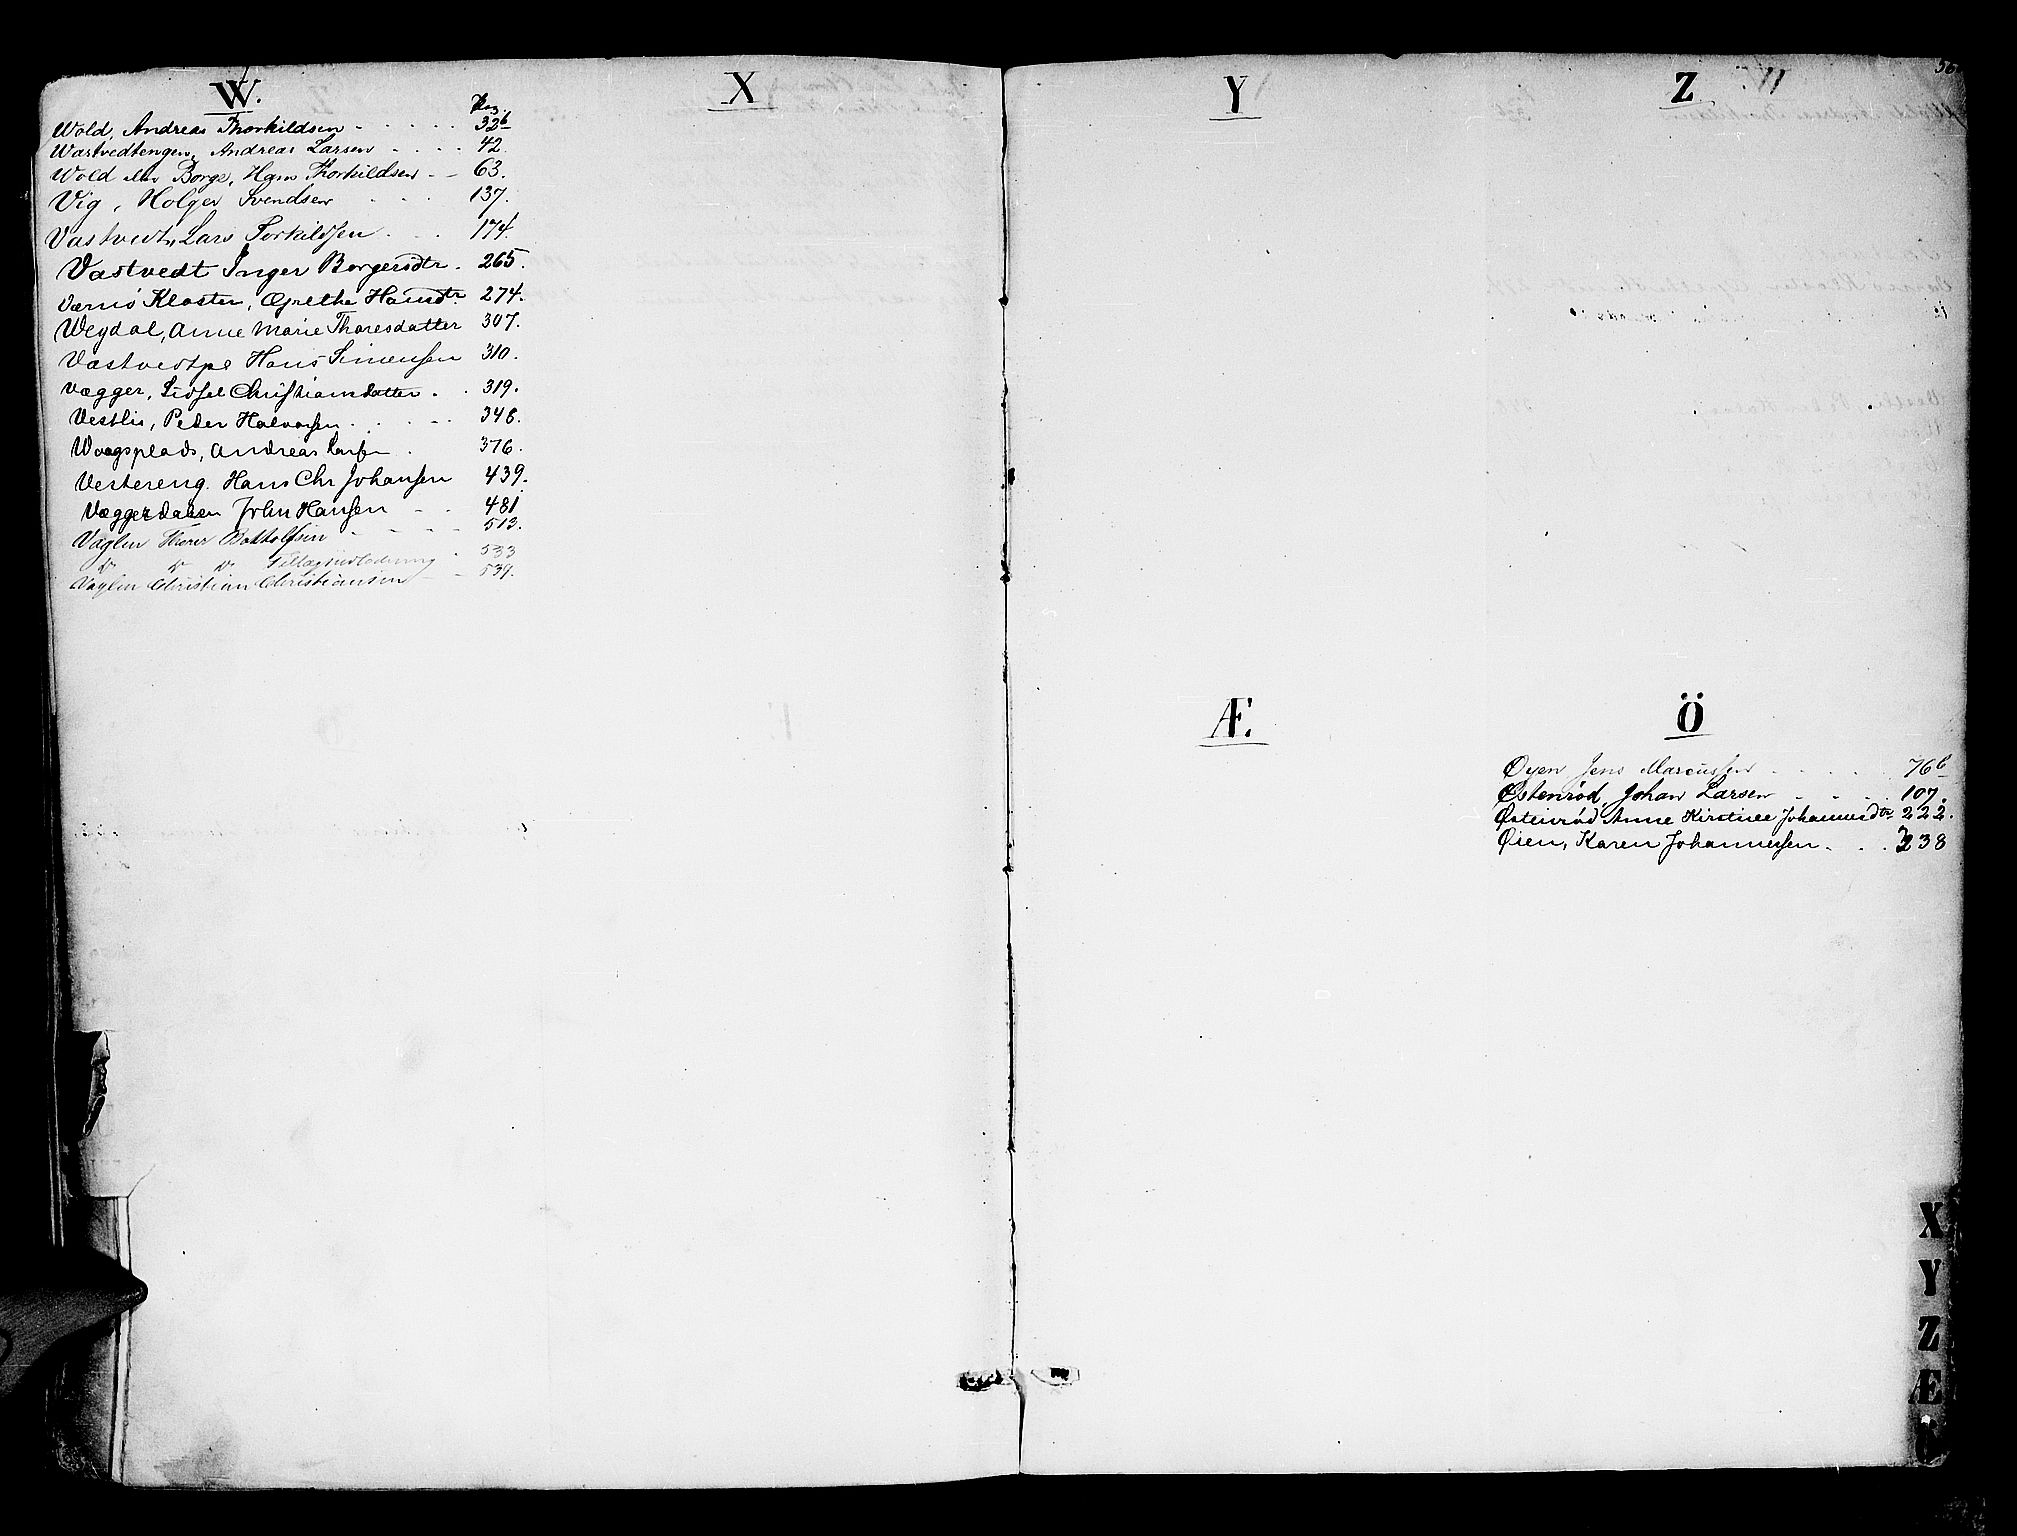 W.
Pag.
Wold, Andreas Thorkildsen - - - - - 32b
Wastvedtengen, Andreas Larsen - - - - 42.
Wold eller Borge, Hans Thorkildsen - - 63.
Vig, Holger Svendsen - - - - 137.
Vastvedt, Lars Torkildsen - - - 174.
Vastvedt Inger Borgersdtr. 265.
Værnø Kloster, Grethe Hansdtr. 274.
Weydal, Anne Marie Thoresdatter 307.
Vastvedtpe Hans Simensen 310.
Vægger, Sidsel Christiansdatter . . 319.
Vestlis, Peder Halvorsen . . . - - 348.
Waagsplads, Andreas Larsen . 376.
Vestereng. Hans Chr Johansen 439.
Væggerdalen John Hansen - - 481
Vaglen Botholfsen - - - - 513.
533
Vaglen Christian Christiansen - - 539.
X
Y
Z
56
Æ.
Ö
Øyen Jens Marcussen - - - - 76b
Østenrød, Johan Larsen - - . . 107.
Østenrød Anne Kirstine Johannesdtr 222.
Øien, Karen Johannessen . . . 238
X
Y
Z
Æ